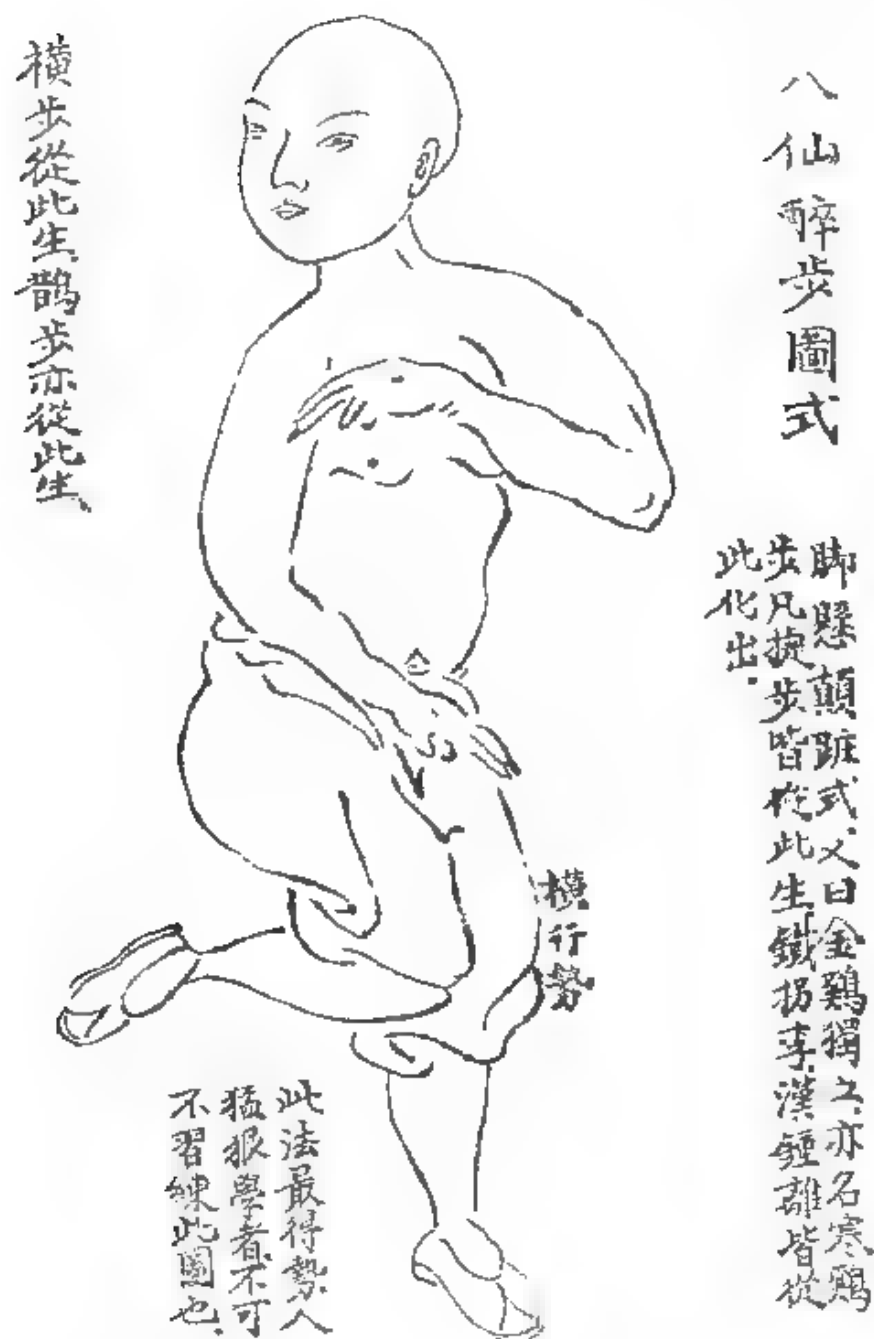 八仙醉步圖式
脚懸顛跛式又曰金鷄獨立亦名寒鷄
步凡捷步皆從此生鐵拐李漢鍾離皆從
此化出.
橫行勢
此法最得勢人
猛狠學者不可
不習練此圖也.
橫步從此生鵲步亦從此生